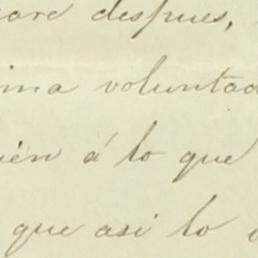 despues,
ima voluntad
ién á lo que
que asi lo